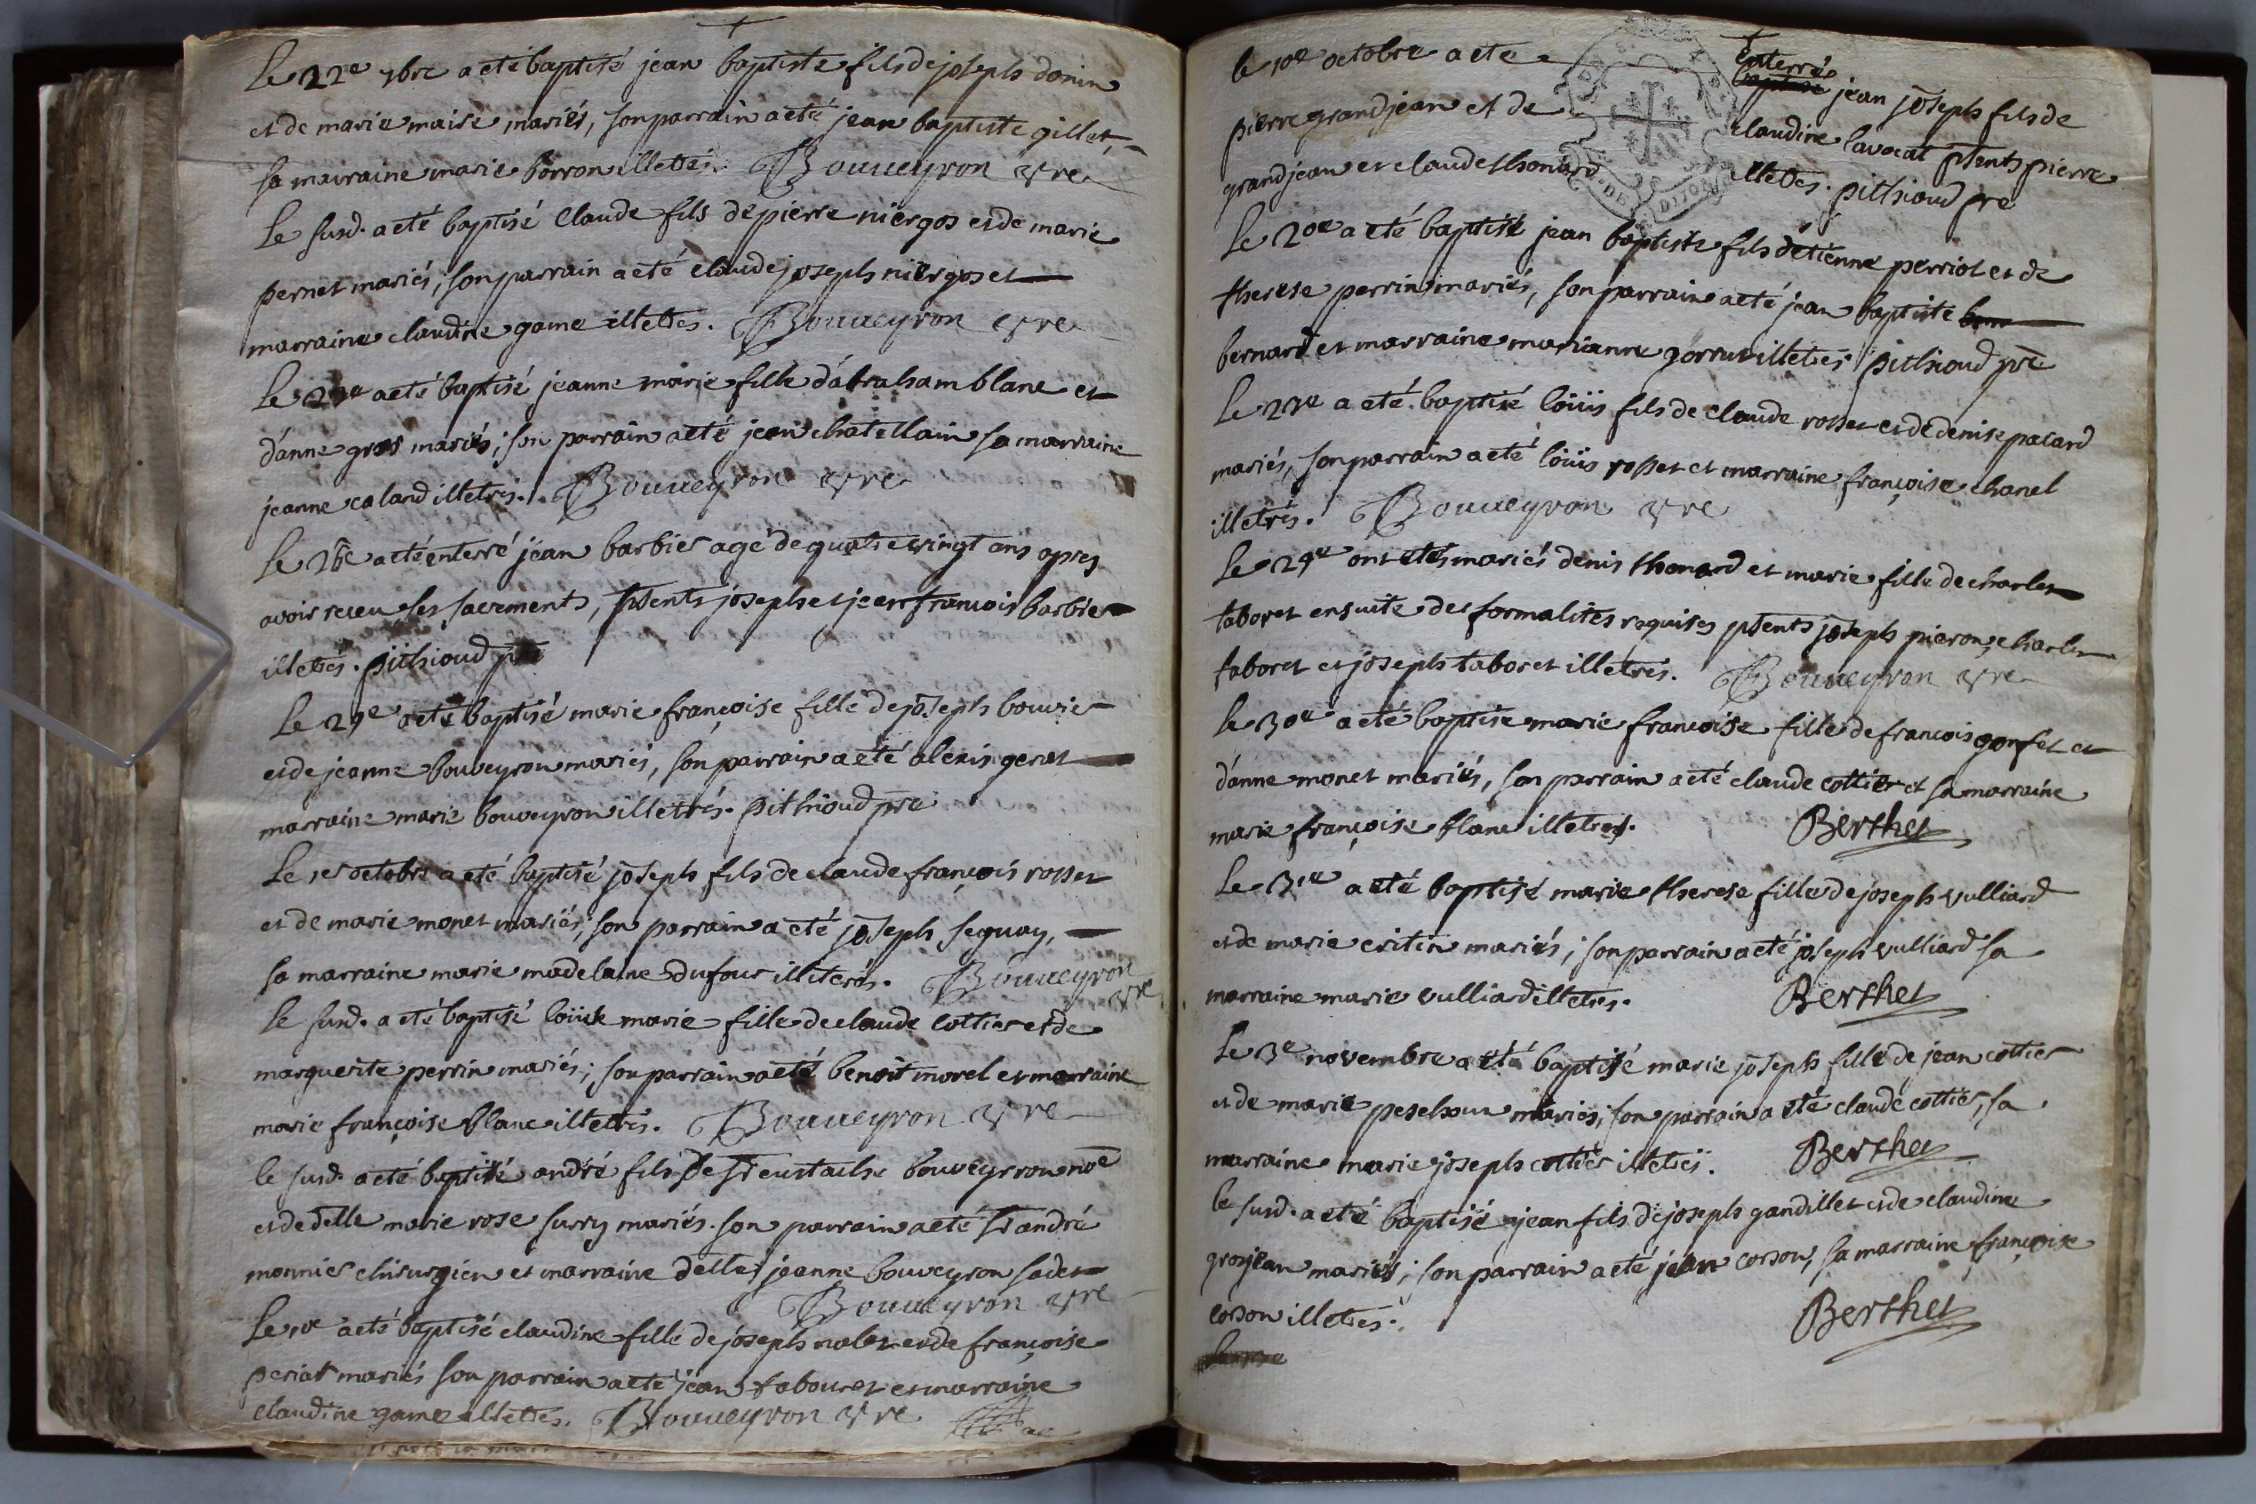 Le 22e 7bre a eté baptisé jean baptiste fils de joseph donin
et de marie maire mariés, son parrain a eté jean baptiste gillet,
sa marraine marie borron illetrés. Bouveyron vre
Le susd. a eté baptisé Claude fils de pierre niergos et de marie
pernet mariés, son parrain a eté claude joseph niergos et
marraine claudine game illetrés. Bouveyron vre
Le a eté baptisé jeanne marie fille d'abraham blanc et
d'anne gros mariés; son parrain a eté jean chatellain sa marraine
jeanne caland illetrés. Bouveyron vre
Le 26e a eté enterré jean barbier agé de quatrevingt ans apres
avoir receu ses sacrements, psents joseph et jean francois barbier
illetrés. pithioud pre
Le 29e a eté baptisé marie françoise fille de joseph bouvier
et de jeanne bouveyron mariés, son parrain a eté alexis geret
marraine marie bouveyron illetrés. pithioud pre
Le 1er octobre a eté baptisé joseph fils de claude françois rosset
et de marie monet mariés; son parrain a eté joseph seguay,
sa marraine marie madelaine dufour illiterés. Bouveyron
vre
Le susd. a eté baptisé loüise marie fille de claude cottier et de
marguerite perrin mariés; son parrain a eté benoit morel et marraine
marie françoise blanc illetrés. Bouveyron vre
le susd. a eté baptisé andré fils de Sr eustache bouveyron noe
et de delle marie rose surry mariés. son parrain a eté Sr andré
monnier chirurgien et marraine delle jeanne bouveyron
Bouveyron vre
Le a eté baptisé claudine fille de joseph et de françoise
periat mariés son parrain a eté jean tabouret et marraine
claudine game illetrés. Bouveyron vre
le 10e octobre a ete enterré jean joseph fils de
pierre grandjean et de claudine lavocat psents pierre
grandjean et claude thomard illetrés. pithioud pre
DE DIJON
Le 20e a eté baptisé jean baptiste fils d'etienne perriot et de
therese perrin mariés, son parrain a eté jean baptiste
bernard et marraine marianne illetrés pithioud pre
Le a eté baptisé loüis fils de claude rosset et de denise pacard
mariés, son parrain a eté loüis rosset et marraine françoise chanel
illetrés. Bouveyron vre
Le 29e ont etés mariés denis thomard et marie fille de charles
taboret ensuite des formalités requises psents joseph pieron, charles
taboret et joseph taboret illetrés. Bouveyron vre
Le 30e a eté baptisé marie françoise fille de francois gonfet et
d'anne monet mariés, son parrain a eté claude cottier et sa marraine
marie françoise blanc illetrés. Berthet
Le 31e a eté baptisé marie therese fille de joseph vulliard
et de marie critin mariés; son parrain a eté joseph vulliard sa
marraine marie vulliard illetrés. Berthet
Le 3e novembre a eté baptisé marie joseph fille de jean cottier
et de marie mariés; son parrain a eté claude cottier, sa
marraine marie joseph cottier illetrés. Berthet
le susd. a eté baptisé jean fils de joseph gandillet et de claudine
grosjean mariés; son parrain a eté jean corson, sa marraine françoise
corson illetrés. Berthet